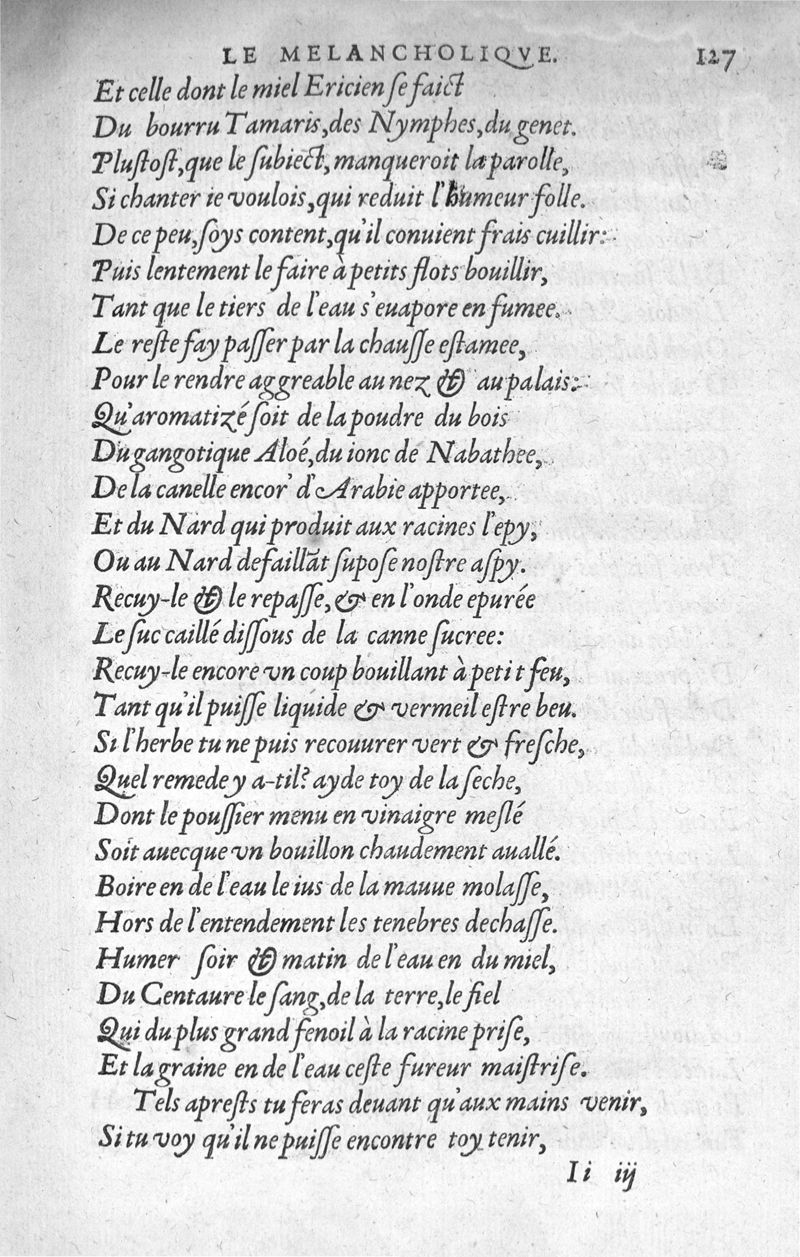 LE MELANCHOLIQVE. 127
Et celle dont le miel Ericien ſe faict
Du bourru Tamaris, des Nymphes, du genet.
Pluſtoſt, que le ſubiect, manqueroit la parolle,
Si chanter ie voulois, qui reduit l'humeur folle.
De ce peu, ſoys content, qu'il conuient frais cuillir:
Puis lentement le faire à petits flots bouillir,
Tant que le tiers de l'eau s'euapore en fumee.
Le reſte fay paſſer par la chauſſe eſtamee,
Pour le rendre aggreable au nez & au palais:
Qu'aromatizé ſoit de la poudre du bois
Du gangotique Aloé, du ionc de Nabathee,
De la canelle encor' d'Arabie apportee,
Et du Nard qui produit aux racines l'epy,
Ou au Nard defaillãt ſupoſe noſtre aſpy.
Recuy-le & le repaſſe, & en l'onde epurée
Le ſuc caillé diſſous de la canne ſucree:
Recuy-le encore vn coup bouillant à petit feu,
Tant qu'il puiſſe liquide & vermeil eſtre beu.
Si l'herbe tu ne puis recouurer vert & freſche,
Quel remede y a-til? ayde toy de la ſeche,
Dont le pouſſier menu en vinaigre meſlé
Soit auecque vn bouillon chaudement auallé.
Boire en de l'eau le ius de la mauue molaſſe,
Hors de l'entendement les tenebres dechaſſe.
Humer ſoir & matin de l'eau en du miel,
Du Centaure le ſang, de la terre, le fiel
Qui du plus grand fenoil à la racine priſe,
Et la graine en de l'eau ceſte fureur maiſtriſe.
Tels apreſts tu feras deuant qu'aux mains venir,
Si tu voy qu'il ne puiſſe encontre toy tenir,
Ii iij